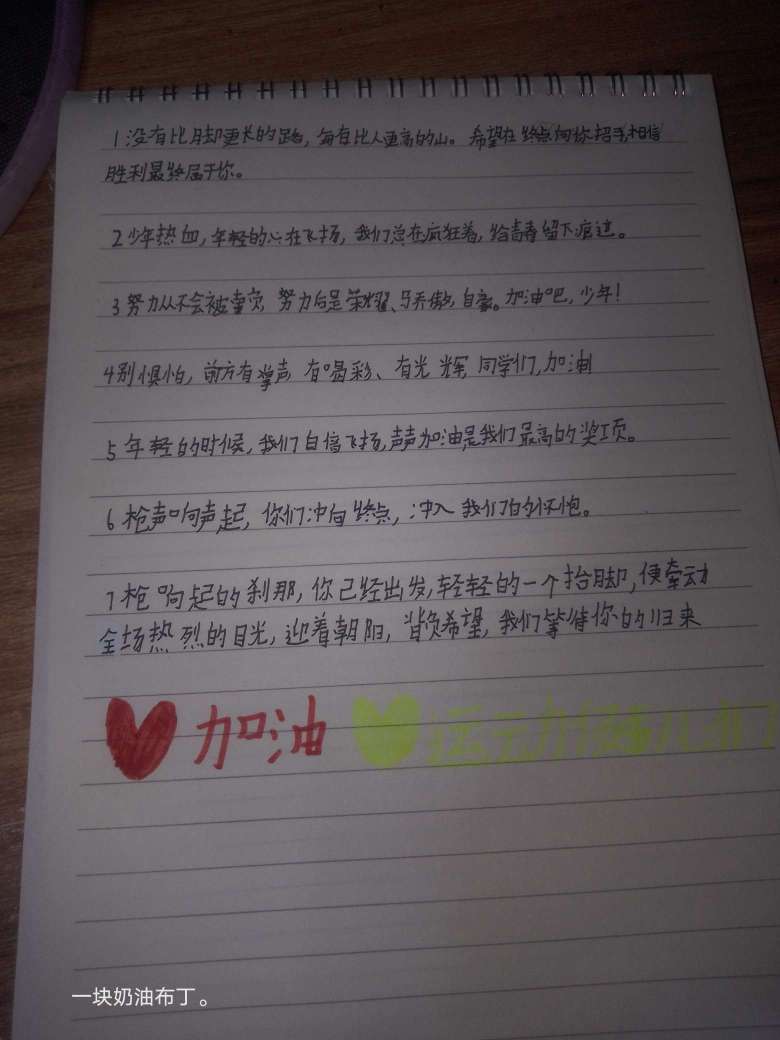 1没有比脚更长的路，每有比人更高的山。希望在终点向你招手,相信
胜利最终属于你。
2少年热血,年轻的心在飞扬,我们总在疯狂着,给青春留下痕迹。
3努力从不会被辜负,努力后是荣耀、骄傲,自豪。加油吧,少年!
4别惧怕,前方有掌声 有喝彩、有光辉,同学们,加油
5年轻的时候,我们自信飞扬,声声加油是我们最高的奖项。
6枪声响声起,你们冲向终点,冲入我们的怀抱。
7枪响起的刹那,你已经出发,轻轻的一个抬脚,便牵动
全场热烈的目光,迎着朝阳,背负希望,我们等待你的归来
加油 运动健儿们
一块奶油布丁。